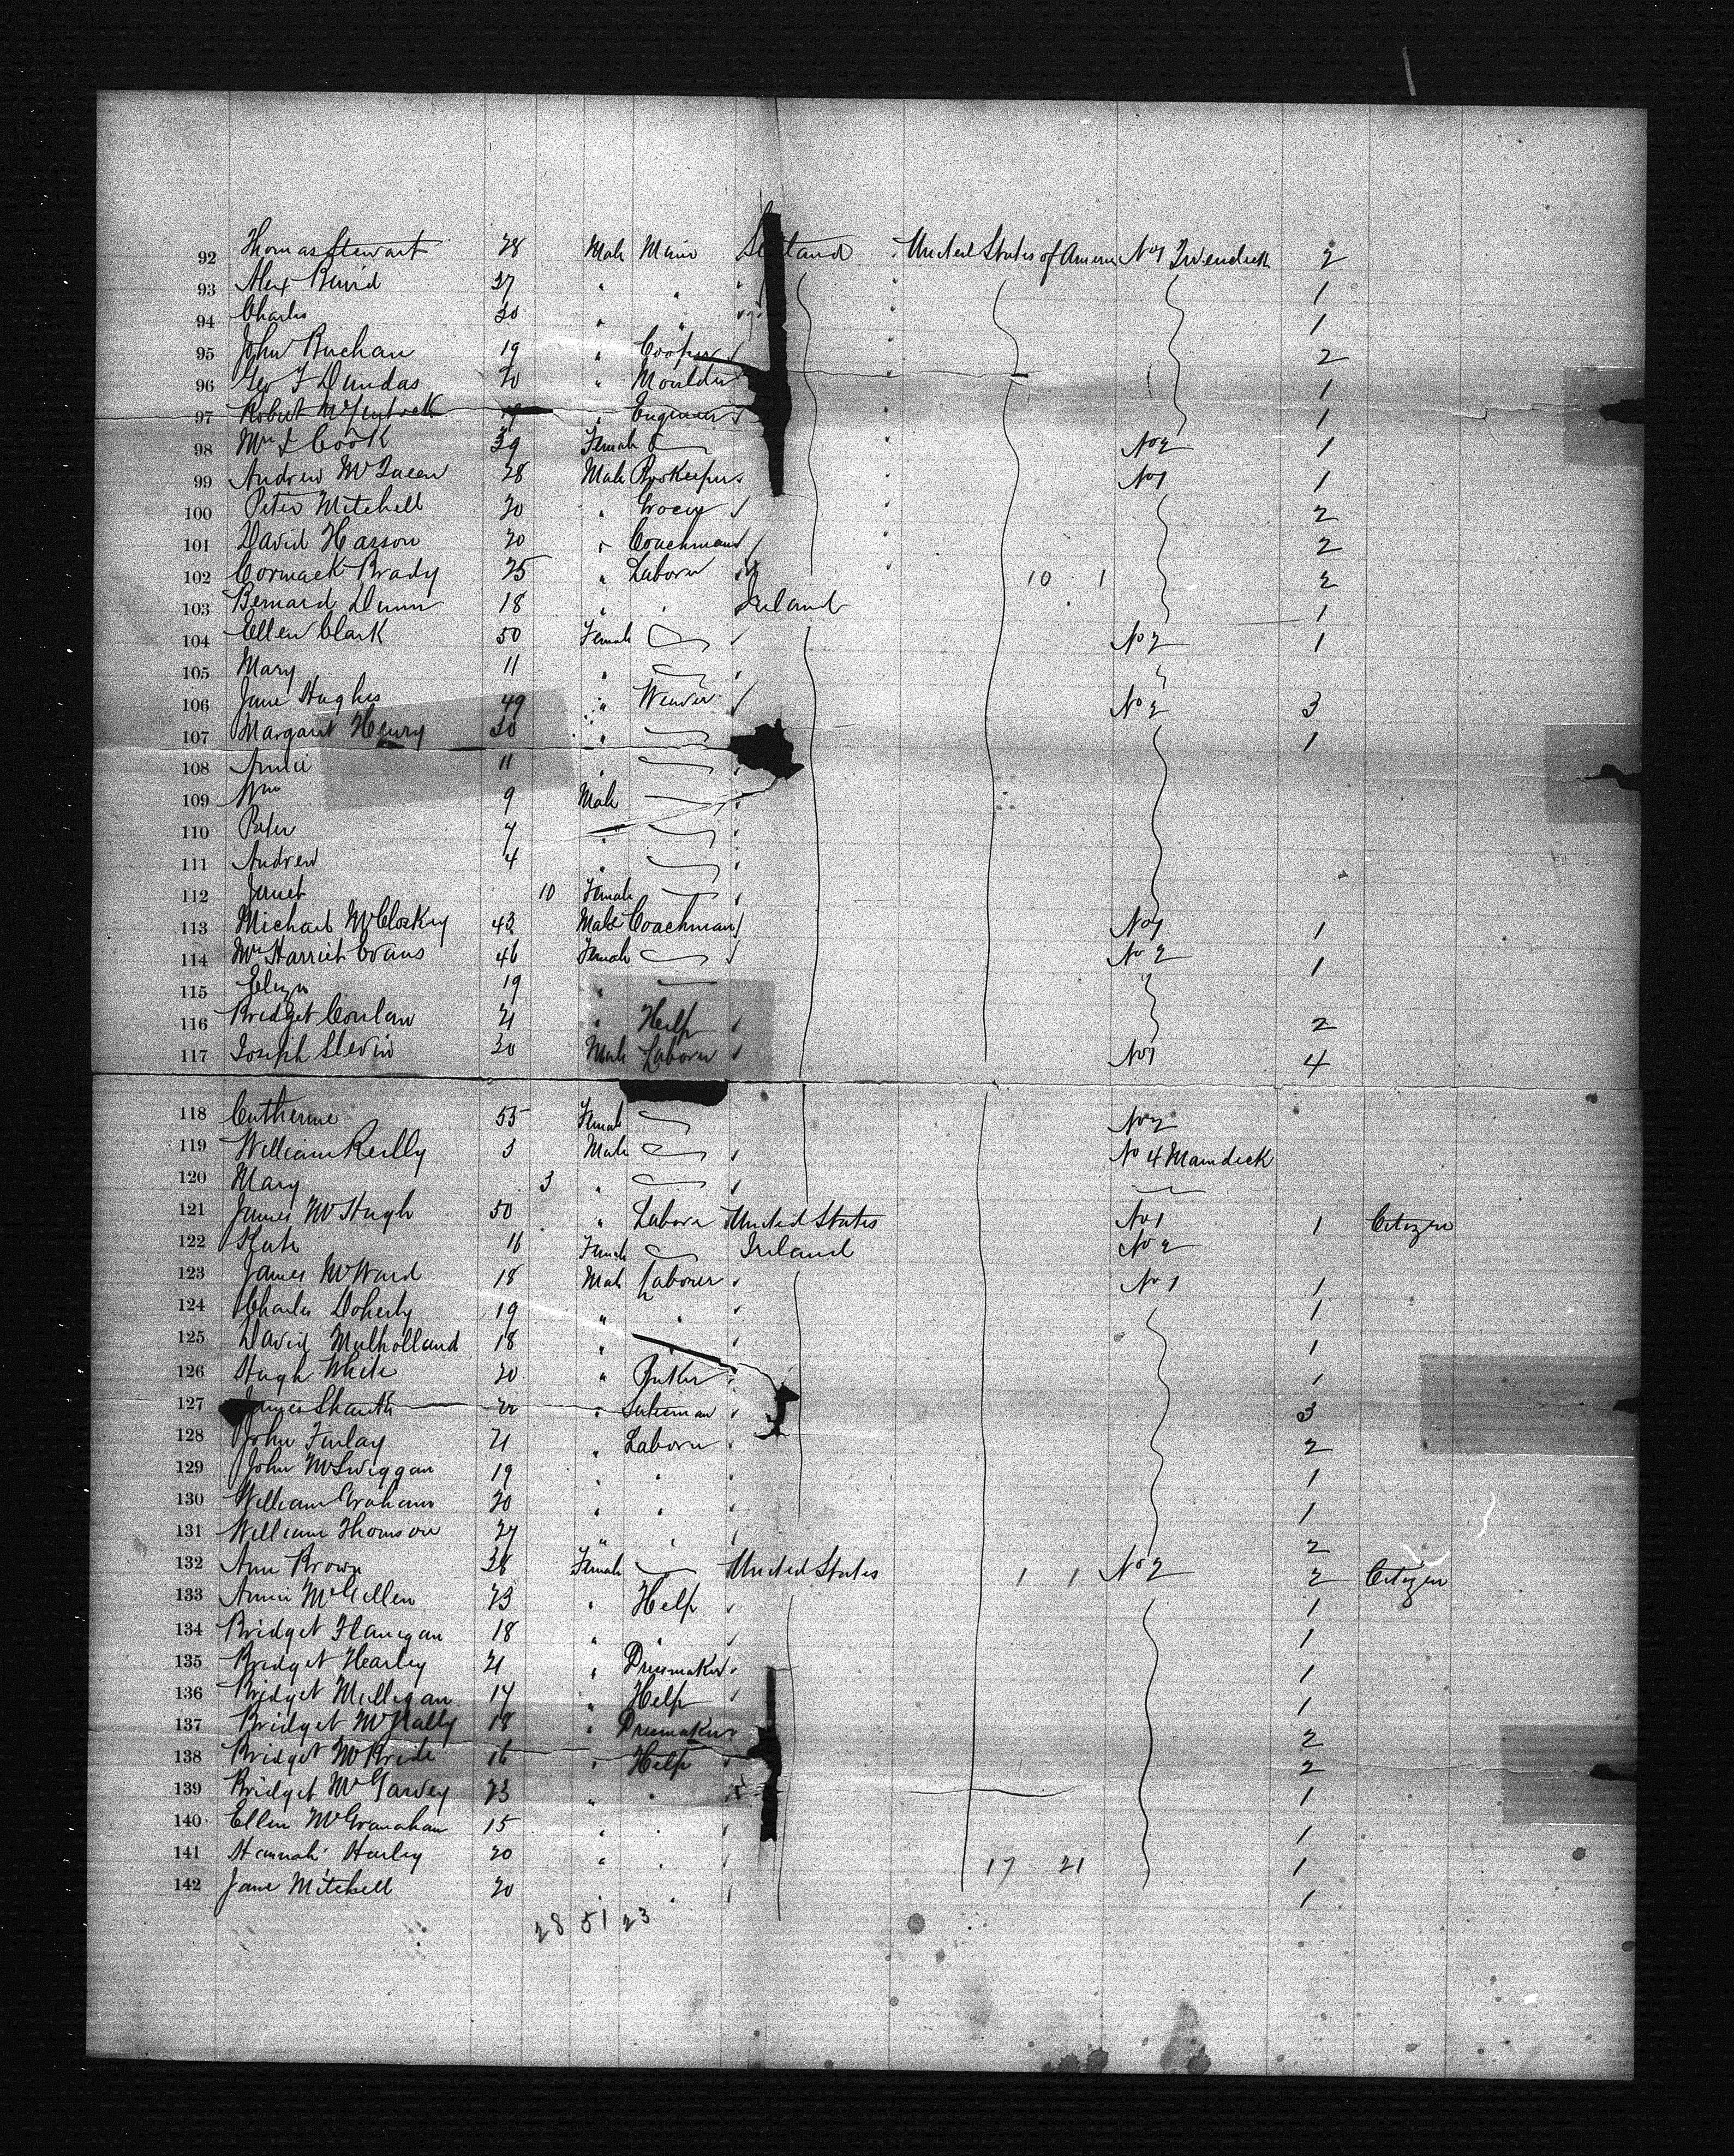 92 Thomas Stewart 28 Male Scotland United States of America No 1 2
93 Alex 37 " " 1
94 Charles 30 " " 1
95 John Buchan 19 " Cooper 2
96 Geo F Dundas 20 " Moulder 1
97 Robert 19 " Engineer 1
98 Mrs Cook 39 Female No 2 1
99 Andrew McQueen 28 Male No 1 1
100 Peter Mitchell 20 " Grocer 2
101 David Hasson 20 " Coachman 2
102 Cormack Brady 25 " Laborer 10 1 2
103 Bernard Dunn 18 " " Ireland 1
104 Ellen Clark 50 Female No 2 1
105 Mary 11 "
106 Jane Hughes 49 " Weaver No 2 3
107 Margaret Henry 30 " 1
108 Annie 11 "
109 Wm 9 Male
110 Peter 7 "
111 Andrew 4 "
112 Janet 10 Female
113 Michael McCloskey 43 Male Coachman No 1 1
114 Mrs Harriet Evans 46 Female No 2 1
115 Eliza 19 "
116 Bridget Conlan 21 " Help 2
117 Joseph Slevin 30 Male Laborer No 1 4
118 Catherine 55 Female No 2
119 William Reilly 3 Male No 4 Maindeck
120 Mary 3 "
121 James McHugh 50 " Laborer United States No 1 1 Citizen
122 Kate 16 Female Ireland No 2
123 James McWard 18 Male Laborer No 1 1
124 Charles Doherty 19 " " 1
125 David Mulholland 18 " 1
126 Hugh White 20 " 1
127 James 22 " 3
128 John Finlay 21 " Laborer 2
129 John McSwiggan 19 " " 1
130 William Graham 20 " " 1
131 William Thomson 27 " " 2
132 Ann Brown 38 Female United States 1 1 No 2 2 Citizen
133 Annie McGillen 23 " Help 1
134 Bridget Flanigan 18 " " 1
135 Bridget Hearley 21 " Dressmaker 1
136 Bridget Milligan 17 " Help 1
137 Bridget McNally 18 " Dressmaker 2
138 Bridget McBride 16 " Help 2
139 Bridget McGarvey 23 " " 1
140 Ellen McGranahan 15 " " 1
141 Hannah Hurley 20 " " 17 21 1
142 Jane Mitchell 20 " " 1
28 51 23